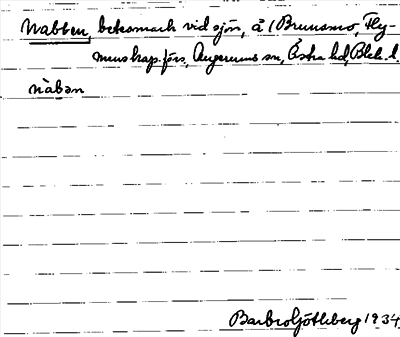 Nabben, betesmark vid sjön, å 1 Brunsmo, Fly-
menskap.förs, Augerums sn, Östra hd, Blek. l.
nàbən
Barbro Götlberg 1934